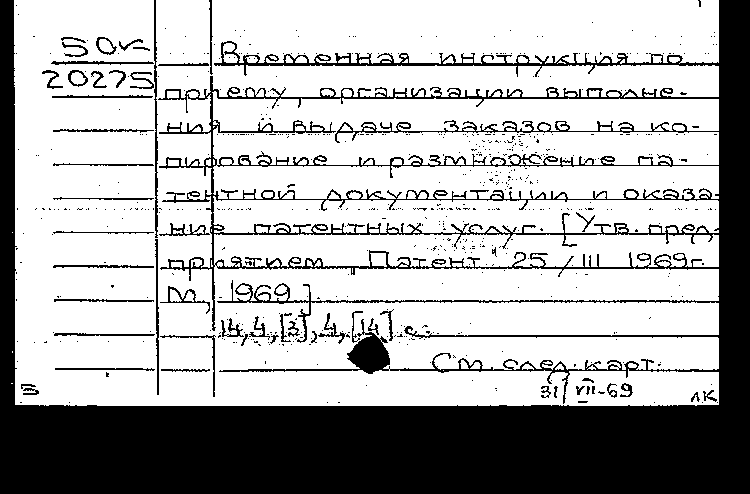 50к
20275
Временная инструкция по
приему, организации выполне-
ния и выдаче заказов на ко-
пирование и размножение па-
тентной документации и оказа-
ние патентных услуг. [Утв. пред-
приятием „Патент" 25/III 1969г.
М., 1969].
14, 4, [3], 4, [14] с.
См. след. карт.
31/VII-69
В
лк